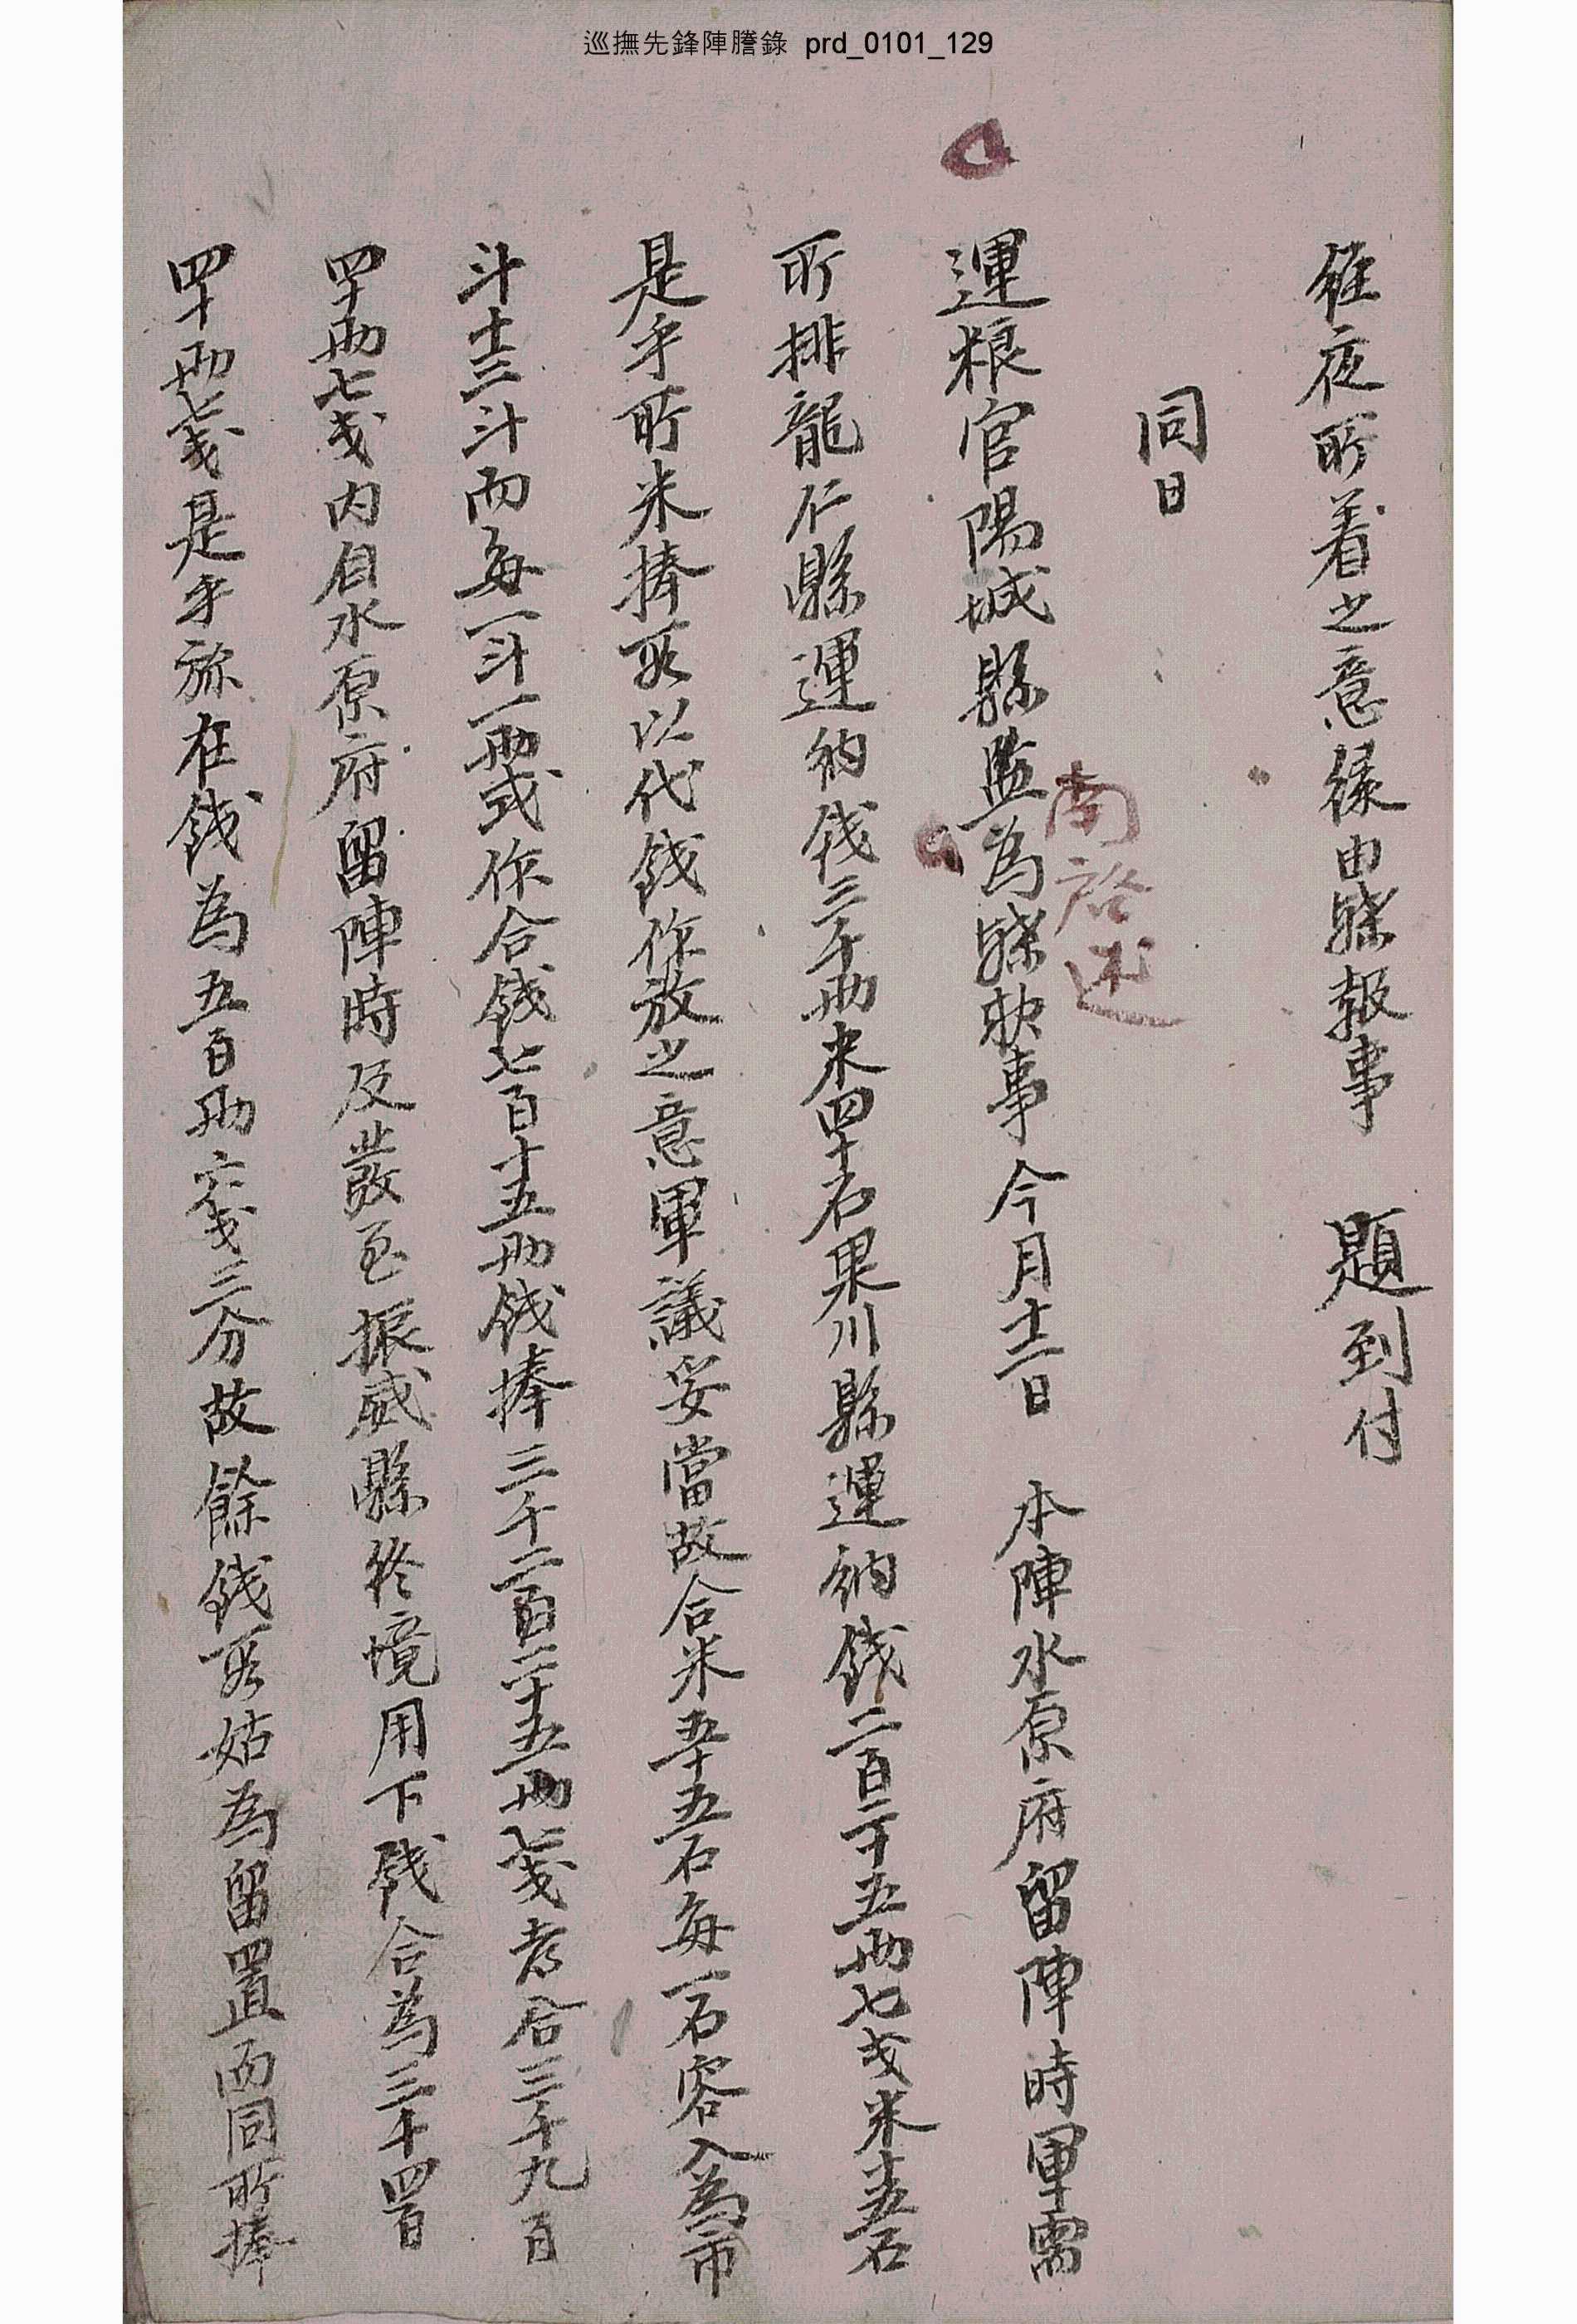 巡撫先鋒陣謄錄 prd_0101_129
徃夜所着之意緣由牒報事 題到付
同日
南啓述
運粮官陽城縣監為牒報事今月十二日 本陣水原府留陣時軍需
所排龍仁縣運納錢三千兩米四十石果川縣運納錢二百二十五兩七戔米十五石
是乎所米捧段以代錢作放之意軍議妥當故合米五十五石每一石容入為市
斗十三斗而每一斗一兩式作合錢七百十五兩錢捧三千二百二十五兩七戔者合三千九百
四十兩七戔內自水原府留陣時及發至振威縣終境用下錢合為三千四百
四十兩七戔是乎旀在錢為五百兩六戔三分故餘錢段姑為留置而同所捧